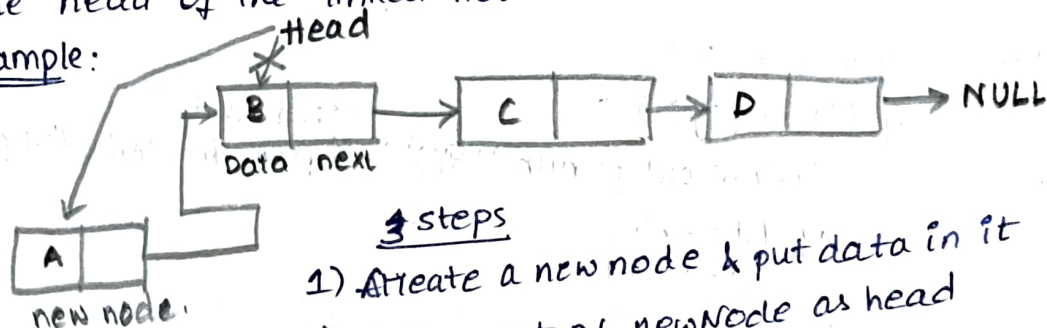 head of the linked
ample:
Head
B
C
D
NULL
Data next
A
new node.
3 steps
1) Create a new node & put data in it
newNode as head